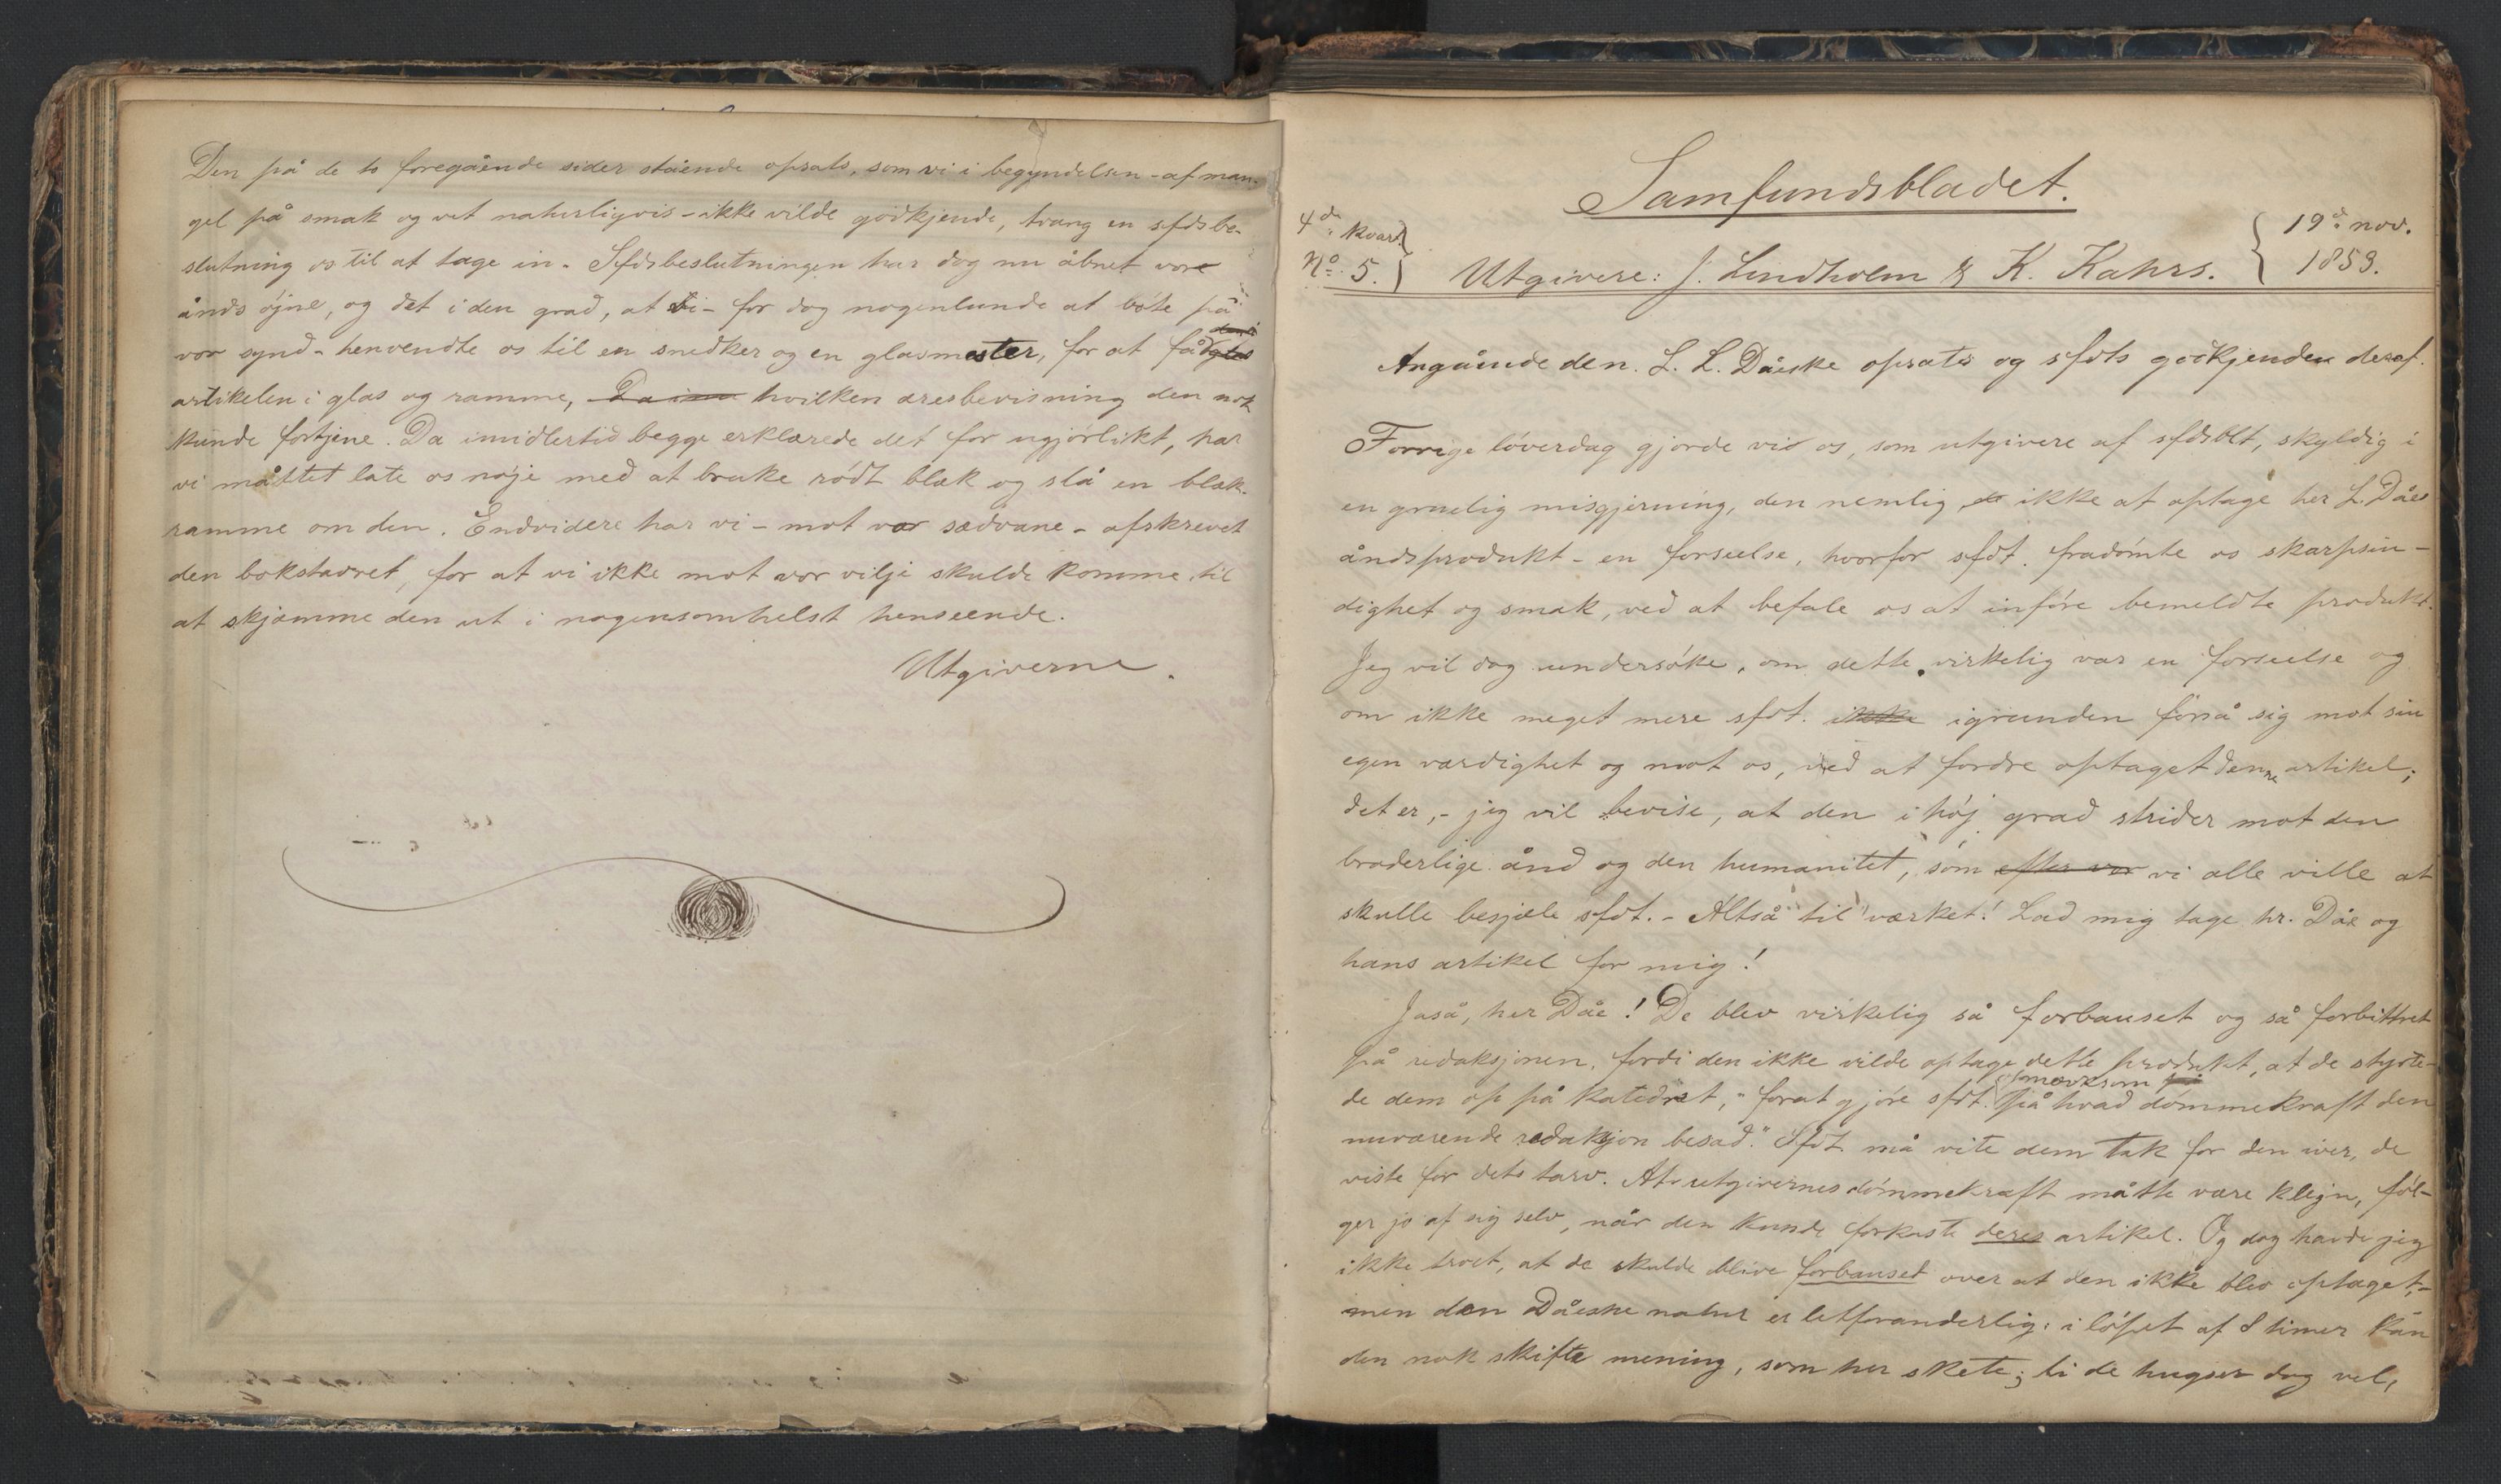 Den på de to foregående sider stående opsats, som vi i begyndelsen - af man-
gel på smak og vet naturligvis - ikke vilde godkjende, tvang en sfdsbe-
slutning os til at tage in. Sfdsbeslutningen har dog nu åbnet vore
ånds öjne, og det i den grad, at vi - for dog nogenlunde at böte på
vor synd - henvendte os til en snedker og en glasmester, for at få
artikelen i glas og ramme, hvilken æresbevisning den nok
kunde fortjene. Da imidlertid begge erklærede det for ugjörlikt, har
vi måttet late os nöje med at bruke rödt blæk og slå en blæk-
ramme om den. Endvidere har vi - mot vor sædvane - afskrevet
den bokstavret, for at vi ikke mot vor vilje skulde komme til
at skjæmme den ut i nogensomhelst henseende.
Utgiverne.
Samfundsbladet.
4de kvart.
No. 5.
Utgivere: J. Lindholm & K. Kahrs.
19de nov.
1853.
Angående den L. L. Dåeske opsats og sfdts godkjenden deraf.
Forrige löverdag gjorde vi os, som utgivere af sfdsblt, skyldig i
en gruelig misgjerning, den nemlig, ikke at optage her L. Dåes
åndsprodukt - en forseelse, hvorfor sfdt. fradömte os skarpsin-
dighet og smak, ved at befale os at införe bemeldte produkt.
Jeg vil dog undersöke, om dette virkelig var en forseelse og
om ikke meget mere sfdt. ikke igrunden forså sig mot sin
egen værdighet og mot os, ved at fordre optaget denne artikel;
det er, - jeg vil bevise, at den i höj grad strider mot den
broderlige ånd og den humanitet, som efter vor vi alle ville at
skulle besjæle sfdt. - Altså til værket! Lad mig tage hr. Dåe og
hans artikel for mig!
Jaså, her Dåe! De blev virkelig så forbauset og så forbittret
på redaksjonen, fordi den ikke vilde optage dette produkt, at de styrte-
de dem op på katedret, "forat gjöre sfdt. opmærksom på hvad dömmekraft den
nuværende redaksjon besad." Sfdt må vite dem tak for den iver, de
viste for dets tarv. At utgivernes dömmekraft måtte være klejn, föl-
ger jo af sig selv, når den kunde forkaste deres artikel. Og dog havde jeg
ikke troet, at de skulde blive forbauset over at den ikke blev optaget, -
men den Dåeske natur er letforanderlig: i löpet af 8 timer kan
den nok skifte mening, som her skete; ti de hugser dog vel,